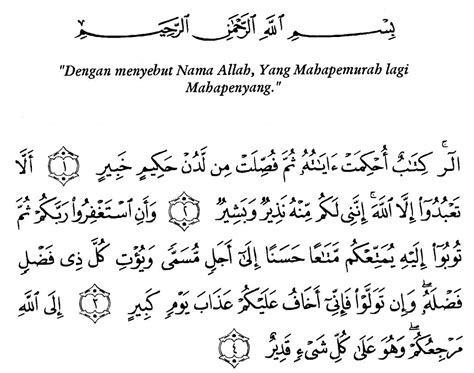 بِسْمِ اللَّهِ الرَّحْمَٰنِ الرَّحِيمِ
"Dengan menyebut Nama Allah, Yang Mahapemurah lagi
Mahapenyang."
الٓرۚ كِتَٰبٌ أُحْكِمَتْ ءَايَٰتُهُۥ ثُمَّ فُصِّلَتْ مِن لَّدُنْ حَكِيمٍ خَبِيرٍ ١ أَلَّا
تَعْبُدُوٓا۟ إِلَّا ٱللَّهَۚ إِنَّنِى لَكُم مِّنْهُ نَذِيرٌ وَبَشِيرٌ ٢ وَأَنِ ٱسْتَغْفِرُوا۟ رَبَّكُمْ ثُمَّ
تُوبُوٓا۟ إِلَيْهِ يُمَتِّعْكُم مَّتَٰعًا حَسَنًا إِلَىٰٓ أَجَلٍ مُّسَمًّى وَيُؤْتِ كُلَّ ذِى فَضْلٍ
فَضْلَهُۥۖ وَإِن تَوَلَّوْا۟ فَإِنِّىٓ أَخَافُ عَلَيْكُمْ عَذَابَ يَوْمٍ كَبِيرٍ ٣ إِلَى ٱللَّهِ
مَرْجِعُكُمْۖ وَهُوَ عَلَىٰ كُلِّ شَىْءٍ قَدِيرٌ ٤